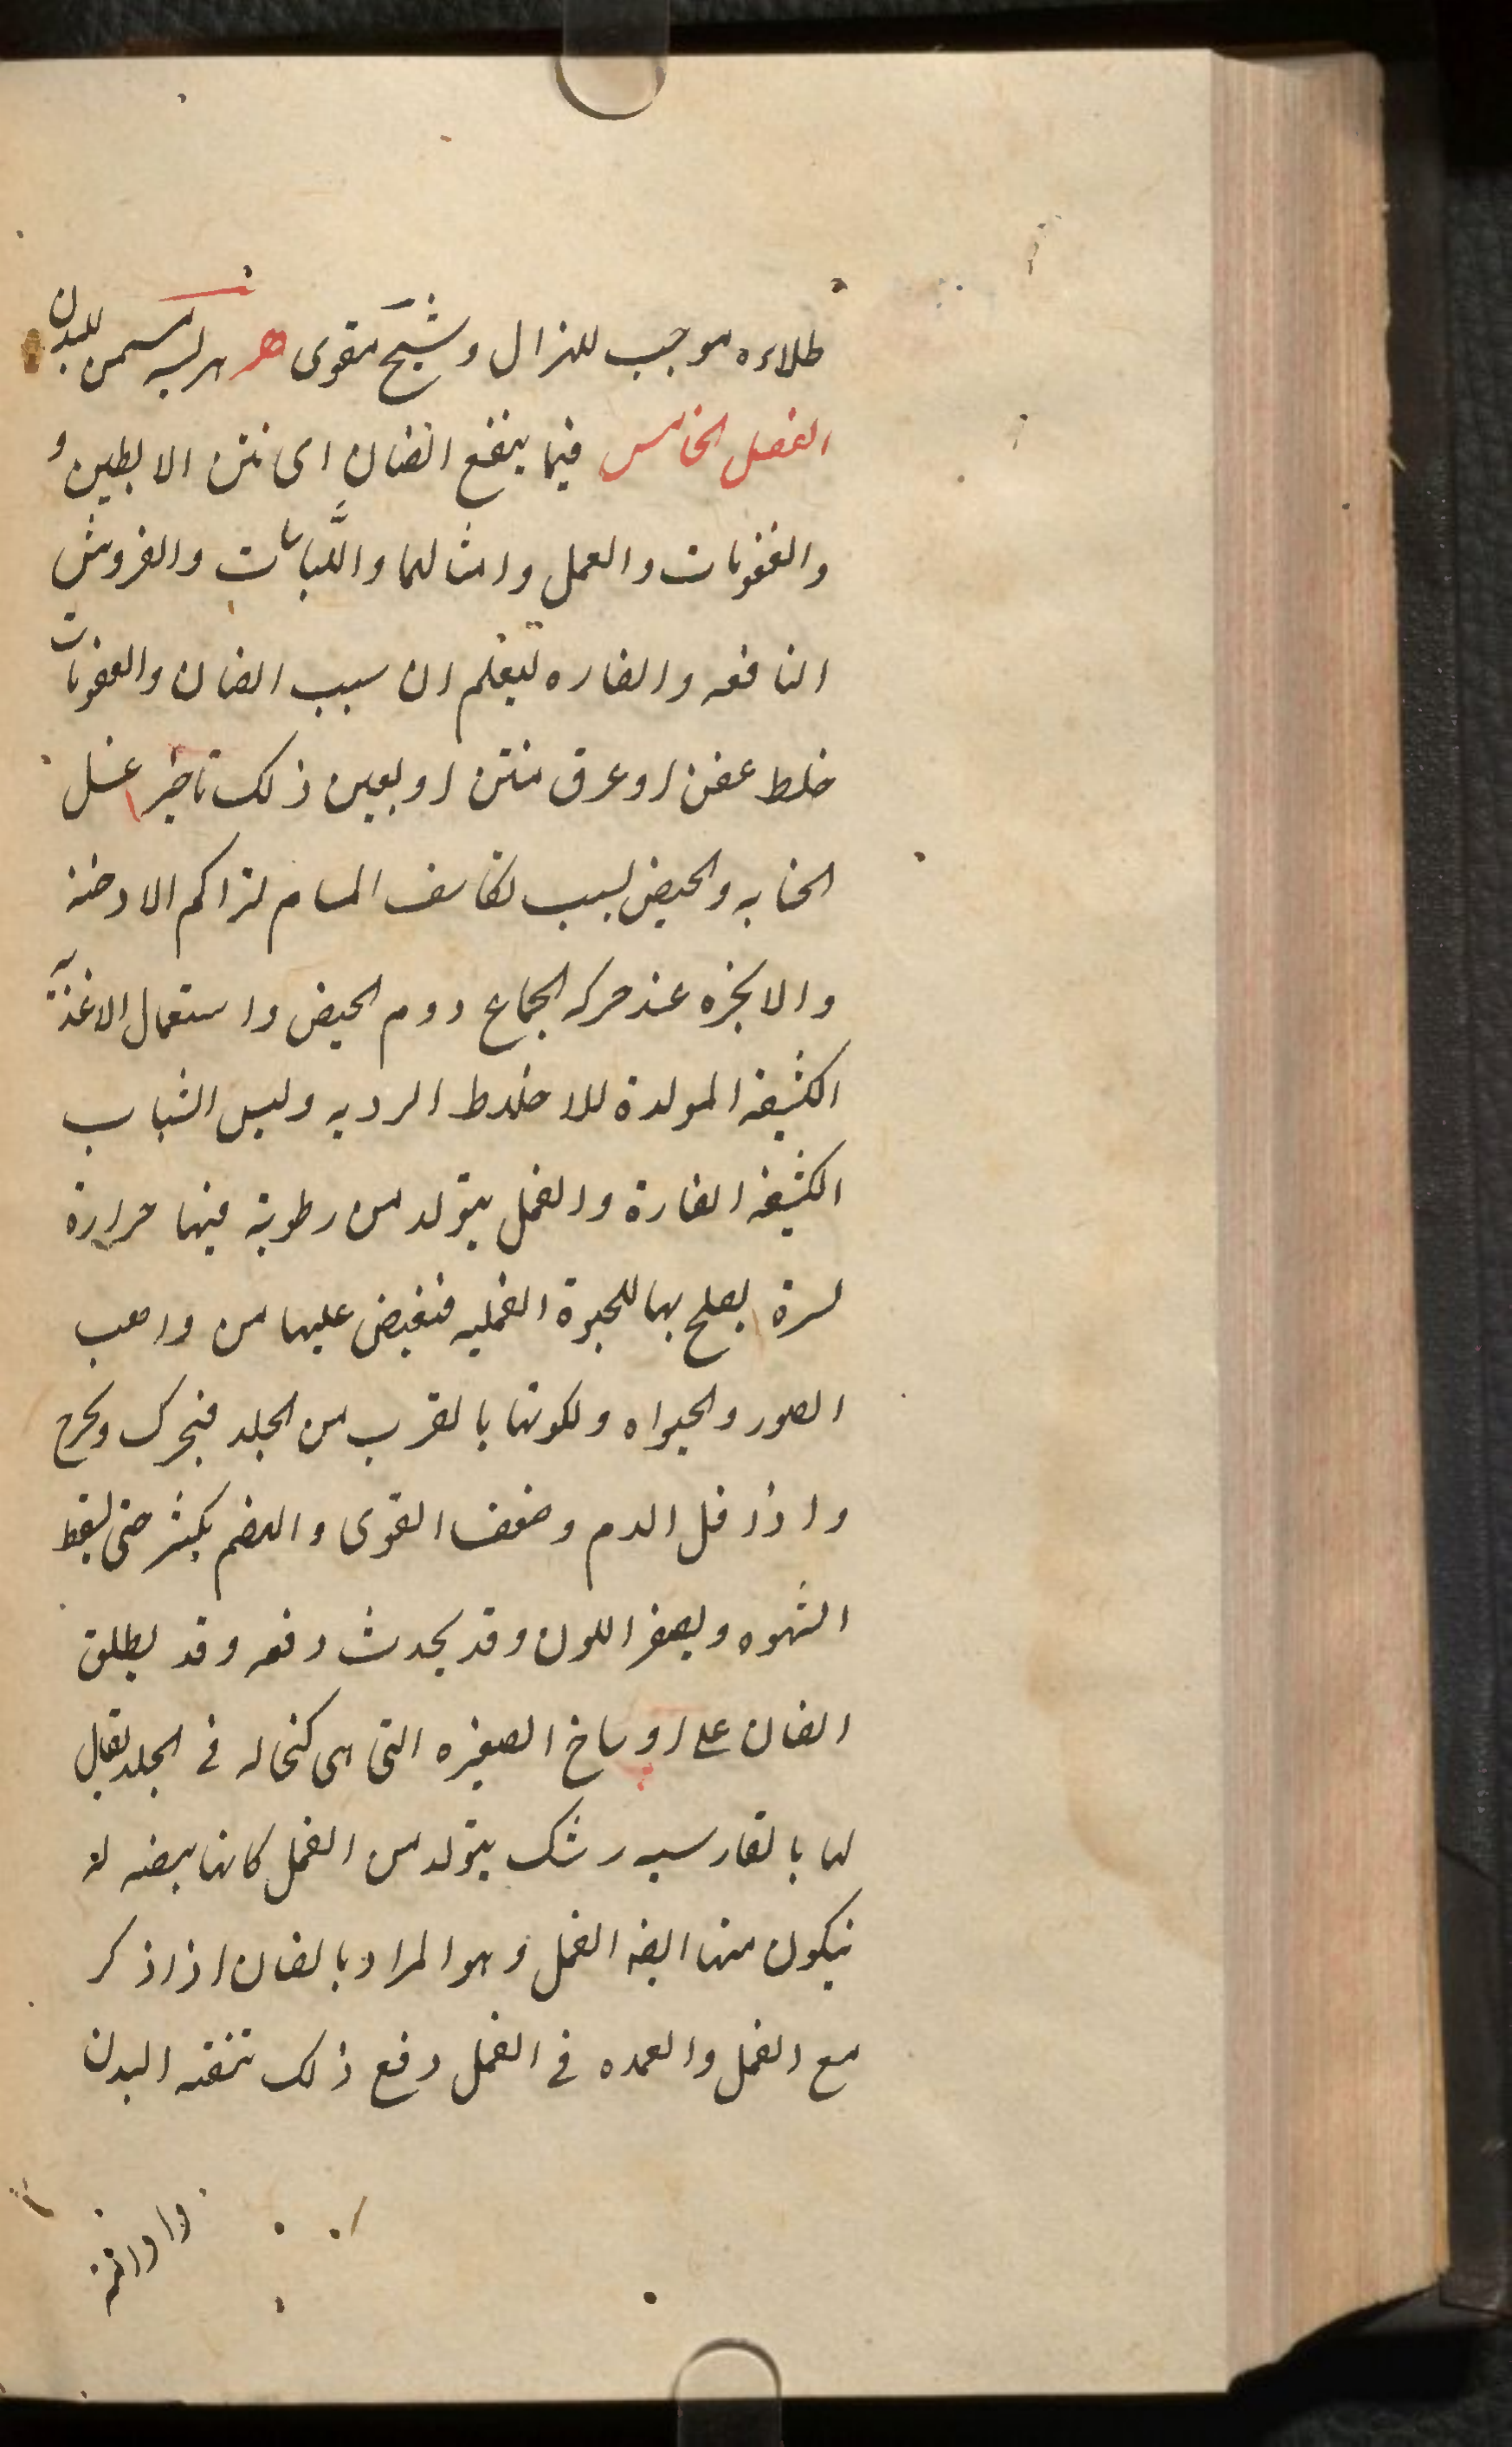 طلاءه موجب للهزال وشیخ مقوی هر هریسه مسمن للبدن
الفصل الخامس فیما ینفع الصنان ای نتن الابطین و
والعفونات والقمل وامثالها واللباسات والفروش
النافعه والضاره لیعلم ان سبب الصنان والعفونات
خلط عفن او عرق منتن او یعین ذلک تاخیر غسل
الجنابه والحیض بسبب تکاثف المسام لتراکم الادخنه
والابخره عند حرکه الجماع ودم الحیض واستعمال الاغذیه
الکثیفه المولدة للاخلاط الردیه ولبس الثیاب
الکثیفه الضارة والقمل یتولد من رطوبة فیها حرارة
یصلح بها للحیوة القملیه فتفیض علیها من واهب
الصور والحیواه ولکونها بالقرب من الجلد فتحرک وتخرج
واذا قل الدم وضعف القوی والهضم یکثر حتی یسقط
الشهوه ویصفر اللون وقد یحدث دفعه وقد یطلق
الصان علی اوساخ الصغیره التی هی کنخاله فی الجلد یقال
لها بالفارسیه رشک یتولد من القمل کانها بیضه له
یتکون منها ایضه القمل وهو المراد بالصان اذا ذکر
مع القمل والعمده فی القمل دفع ذلک تنقیه البدن